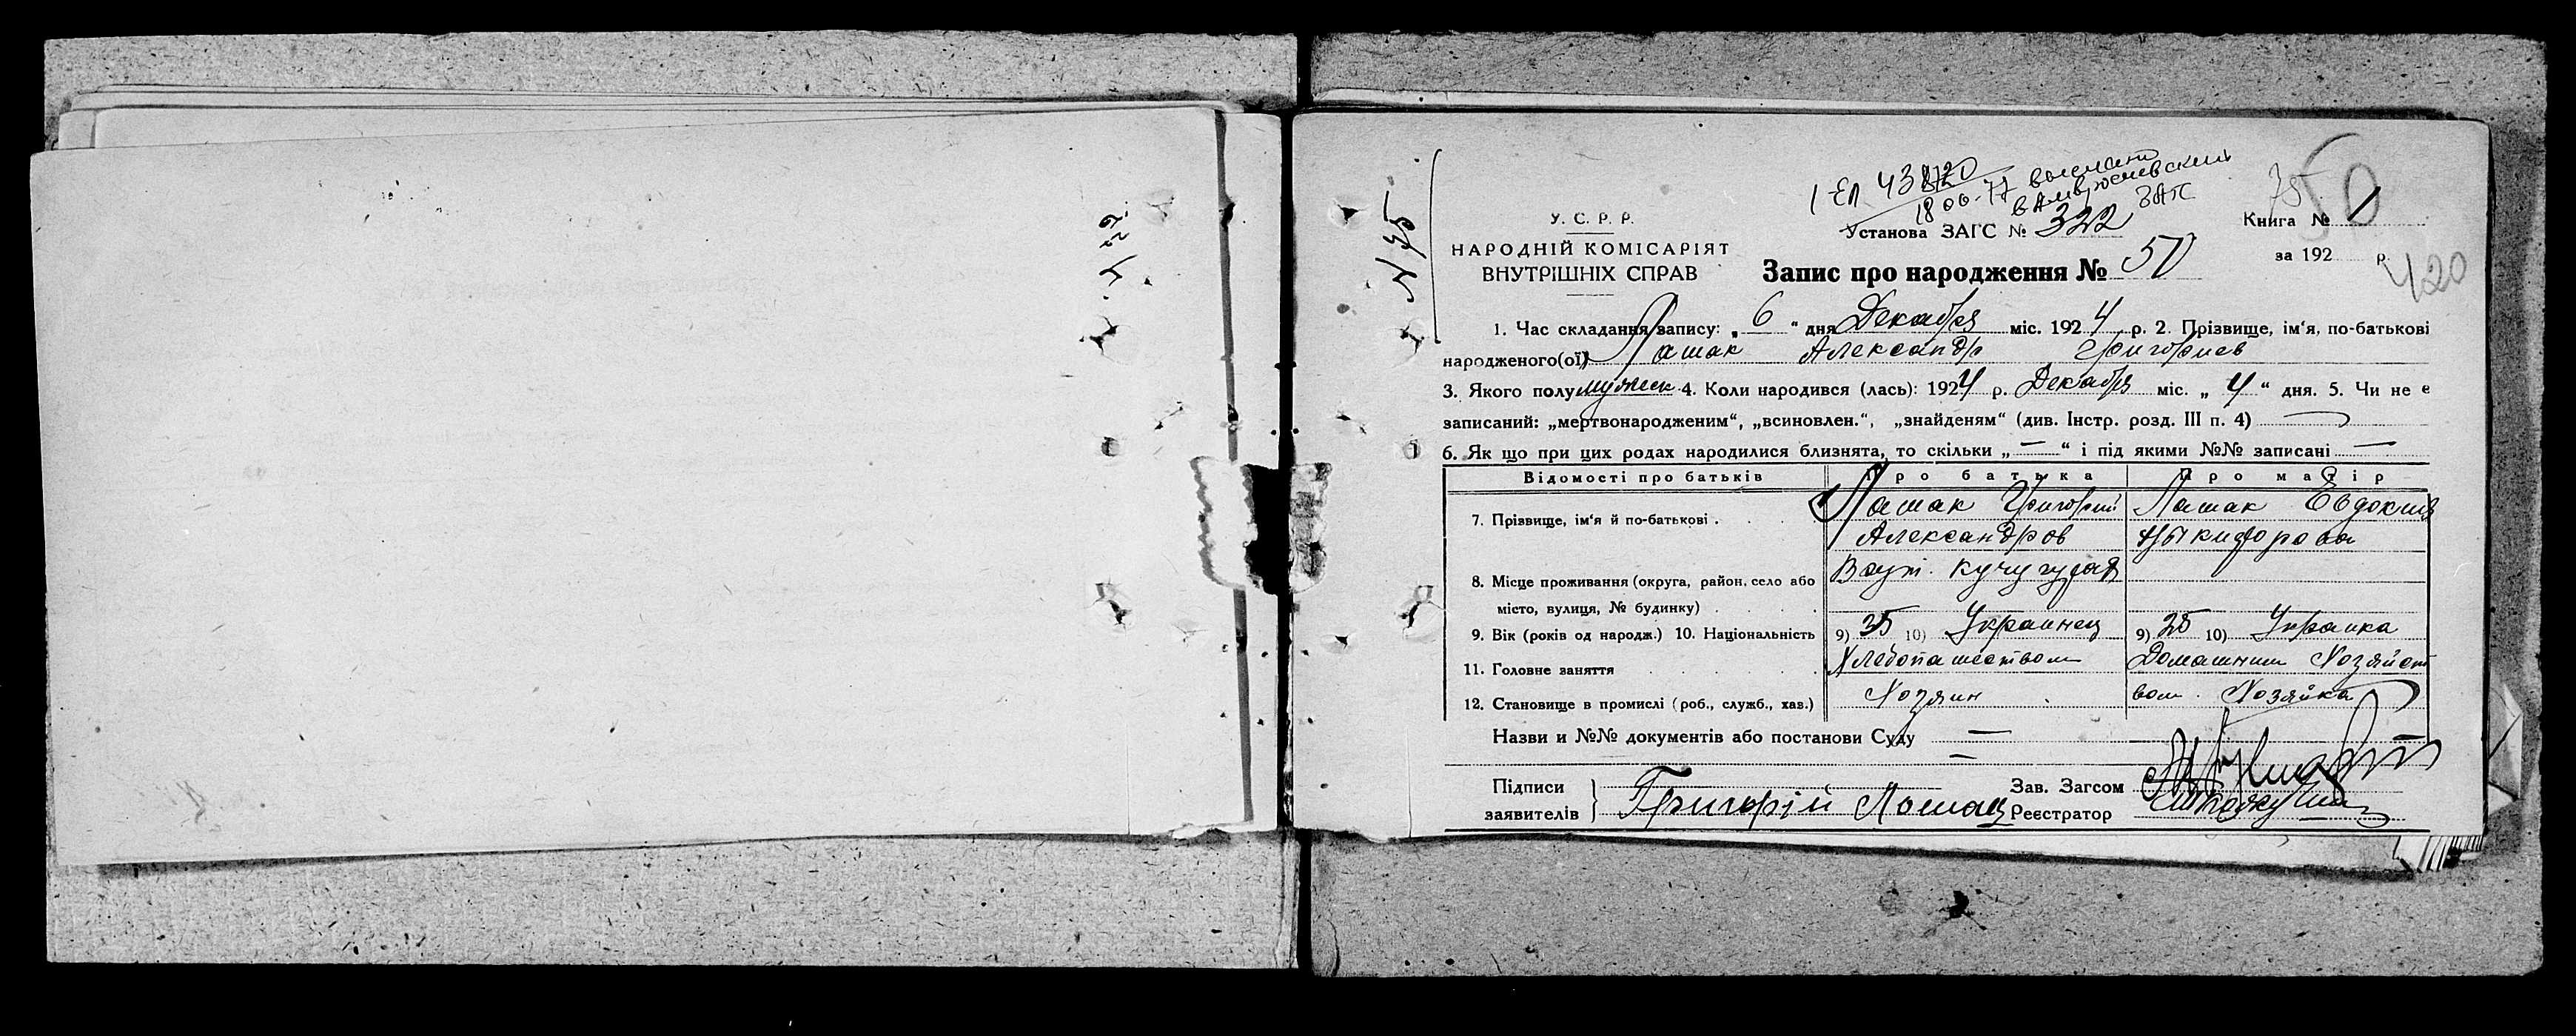 N 75
У. С. Р. Р.
НАРОДНІЙ КОМІСАРІЯТ
ВНУТРІШНІХ СПРАВ
1-ЕЛ 43
1800-77 выслат
в Амвросиевский
ЗАГС
Установа ЗАГС № 322
Запис про народження № 50
75
50
Книга № 1
за 192 р.
420
1. Час складання запису: „ 6 “ дня Декабря міс. 1924 р. 2. Прізвище, ім'я, по-батькові
народженого(ої) Лашак Александр Григориев
3. Якого полу мужск. 4. Коли народився (лась): 1924 р. Декабря міс. „ 4 “ дня. 5. Чи не є
записаний: „мертвонародженим“, „всиновлен.“, „знайденям“ (див. Інстр. розд. III п. 4)
6. Як що при цих родах народилися близнята, то скільки „ — “ і під якими №№ записані —
Відомості про батьків Про батька Про матір
7. Прізвище, ім'я й по-батькові . Лашак Григорий Лашак Евдокия
Александров
8. Місце проживання (округа, район, село або
місто, вулиця, № будинку)
9. Вік (років од народж.) 10. Національність 9) 35 10) Украинец 9) 28 10) Украинка
11. Головне заняття Хлебопашеством Домашним Хозяйст
12. Становище в промислі (роб., служб., хаз.) Хозяин вом. Хозяйка
Назви и №№ документів або постанови Суду —
Підписи
заявителів Григорій Лошак
Зав. Загсом
Реєстратор